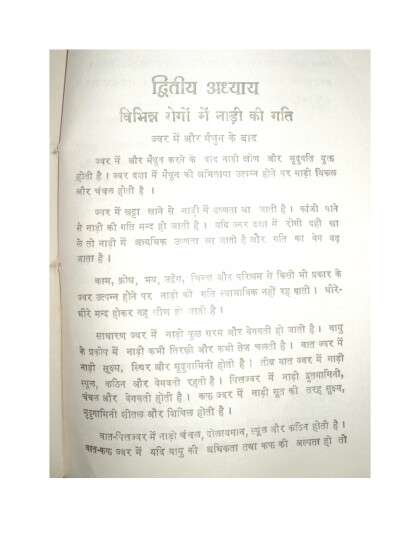 द्वितीय अध्याय
विभिन्न रोगों में नाड़ी की गति
ज्वर में और मैथुन के बाद
ज्वर में और मैथुन करने के बाद नाड़ी क्षीण और मृदुगति युक्त
होती है । ज्वर दशा में मैथुन की अभिलाषा उत्पन्न होने पर नाड़ी विकल
और चंचल होती है ।
ज्वर में खट्टा खाने से नाड़ी में उष्णता आ जाती है । काँजी पीने
से नाड़ी की गति मन्द हो जाती है । यदि ज्वर दशा में रोगी दही खा
ले तो नाड़ी में अत्यधिक उष्णता आ जाती है और गति का वेग बढ़
जाता है ।
काम, क्रोध, भय, उद्वेग, चिन्ता और परिश्रम से किसी भी प्रकार के
ज्वर उत्पन्न होने पर नाड़ी की गति स्वाभाविक नहीं रह पाती । धीरे-
धीरे मन्द होकर वह क्षीण हो जाती है ।
साधारण ज्वर में नाड़ी कुछ गरम और वेगवती हो जाती है । वायु
के प्रकोप में नाड़ी कभी तिरछी और कभी तेज चलती है । वात ज्वर में
नाड़ी सूक्ष्म, स्थिर और मृदुगामिनी होती है । तीव्र वात ज्वर में नाड़ी
स्थूल, कठिन और वेगवती रहती है । पित्तज्वर में नाड़ी द्रुतगामिनी,
चंचल और वेगवती होती है । कफ ज्वर में नाड़ी सूत की तरह सूक्ष्म,
मृदुगामिनी शीतल और शिथिल होती है ।
वात-पित्तज्वर में नाड़ी चंचल, दोलायमान, स्थूल और कठिन होती है ।
वात-कफ ज्वर में यदि वायु की अधिकता तथा कफ की अल्पता हो तो